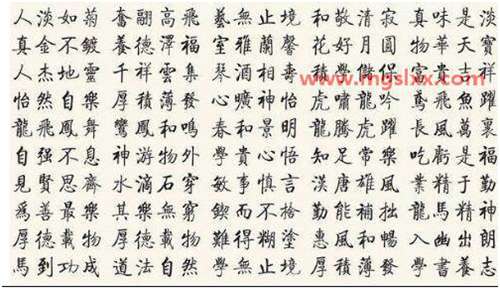 人淡如菊 奮翮高飛 藝無止境 和敬清寂 真味是淡
真金不鍍 養德澤福 室雅蘭馨 花好月圓 物華天寶
人杰地靈 千祥雲集 琴酒相壽 積學 吉
www.mgslxx.com
怡然自樂 厚積薄發 心曠神怡 虎嘯龍吟 鳶飛魚躍
龍飛鳳舞 鸞鳳和鳴 春和景明 龍騰虎躍 長風萬裏
自强不息 神游物外 學貴心悟 知足常樂 吃虧是福
見賢思齊 水滴石穿 敏事慎言 漢唐雄風 業精于勤
爲善最樂 其樂無窮 鍥而不捨 勤能補拙 龍馬精神
厚德載物 厚德載物 難得糊塗 惠風和暢 入幽出朗
馬到功成 道法自然 學無止境 厚積薄發 學書養志